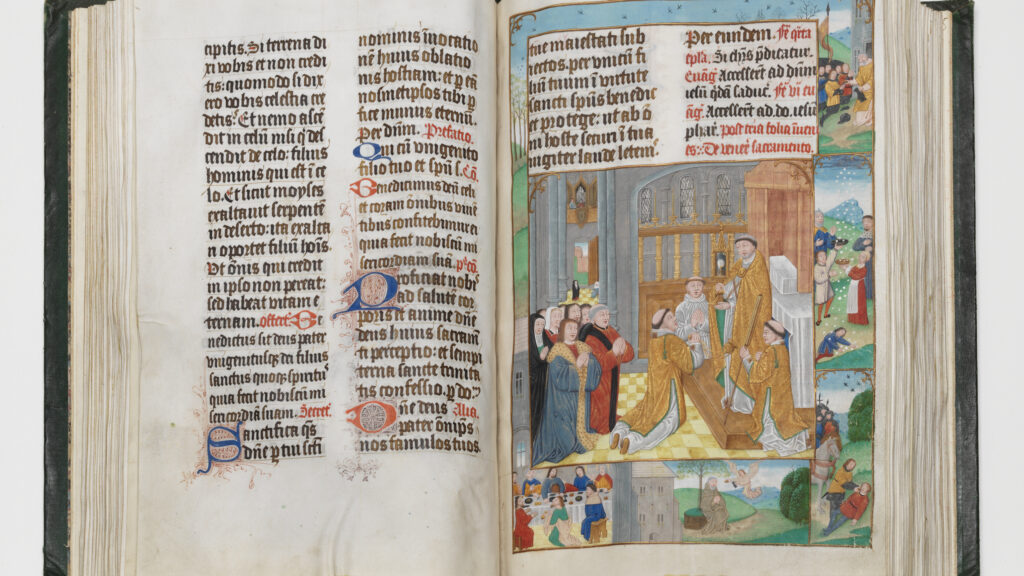 cipitis. Si terrena di
xi vobis et non credi
tis: quomodo si dix
ero vobis celestia cre
detis? Et nemo asce
dit in celū nisi q̇ des
cendit de celo: filius
hominis qui est ī ce
lo. Et sicut moyses
exaltauit serpentē
in deserto: ita exalta
ri oportet filiū hoīs.
Vt oīnis qui credit
in ipso non pereat:
sed habeat vitam e
ternam. offert̄. Be
nedictus sit deus pater
vnigenitusqȝ dei filius
sanctus quoqȝ spiritus
quia fecit nobiscū mi
sericordiam suam. Secret̄
Sanctifica qs
dn̄e per tui sc̄ti
nominis inuocatio
nem huius oblatio
nis hostiam: et p eā
nosmetipsos tibi p
fice munus eternū.
Per dn̄m. Prefatio.
Qui cū vnigenito
filio tuo et spū s. Cō.
Benedicimus deū celi
et coram omnibus viuē
tibus confitebimur ei
quia fecit nobiscū mi
sericordiam suā. P̄co
Proficiat nobis
ad salutē cor
poris et anime dn̄e
deus huius sacram̄
ti perceptio: et sempi
terna sancte trinita
tis confessio. p. do?
Dn̄e deus Alia.
pater om̄ips
nos famulos tuos
tue maiestati sub
iectos. per vnicū fi
liū tuum ī virtute
sancti spūs benedic
et protege: ut ab o
mi hoste securi ī tua
iugiter laude letem̄
Per eundem. Fē q̄rta
ep̄la. Si chr̄s p̄dicatur.
Euāḡ. Accesserūt ad dūm
iesū qdā saduc. Fē vi eu
āḡ. Accesserūt ad do. iesū
phar. Post tria folia inuen
es: De venerᵇ sacramento.